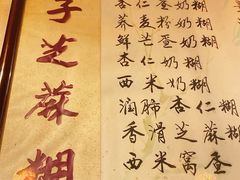 子芝蔴糊
杏仁蛋奶糊
荞麦粉奶糊
鲜芒蛋奶糊
杏仁奶糊
西米奶糊
润肺杏仁糊
香滑芝蔴糊
西米窝蛋